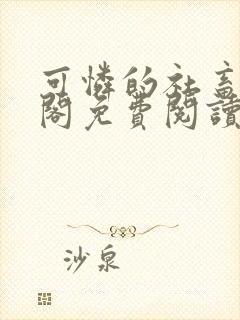 可憐的社畜
閣免費閱讀
沙泉